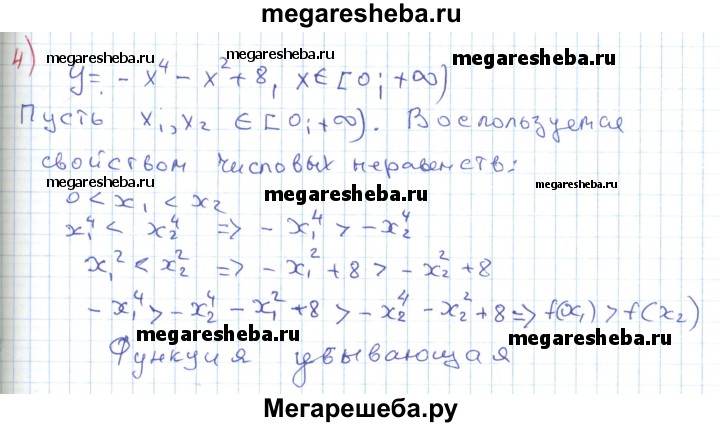 megaresheba.ru
4)
megaresheba.ru megaresheba.ru megaresheba.ru
y = -x⁴ - x² + 8, x ∈ [0; +∞)
Пусть x₁, x₂ ∈ [0; +∞). Воспользуемся
свойством числовых неравенств:
megaresheba.ru megaresheba.ru megaresheba.ru
0 < x₁ < x₂
x₁⁴ < x₂⁴ => -x₁⁴ > -x₂⁴
x₁² < x₂² => -x₁² + 8 > -x₂² + 8
-x₁⁴ > -x₂⁴ - x₁² + 8 > -x₂⁴ - x₂² + 8 => f(x₁) > f(x₂)
megaresheba.ru megaresheba.ru
Функция убывающая
Мегарешеба.ру